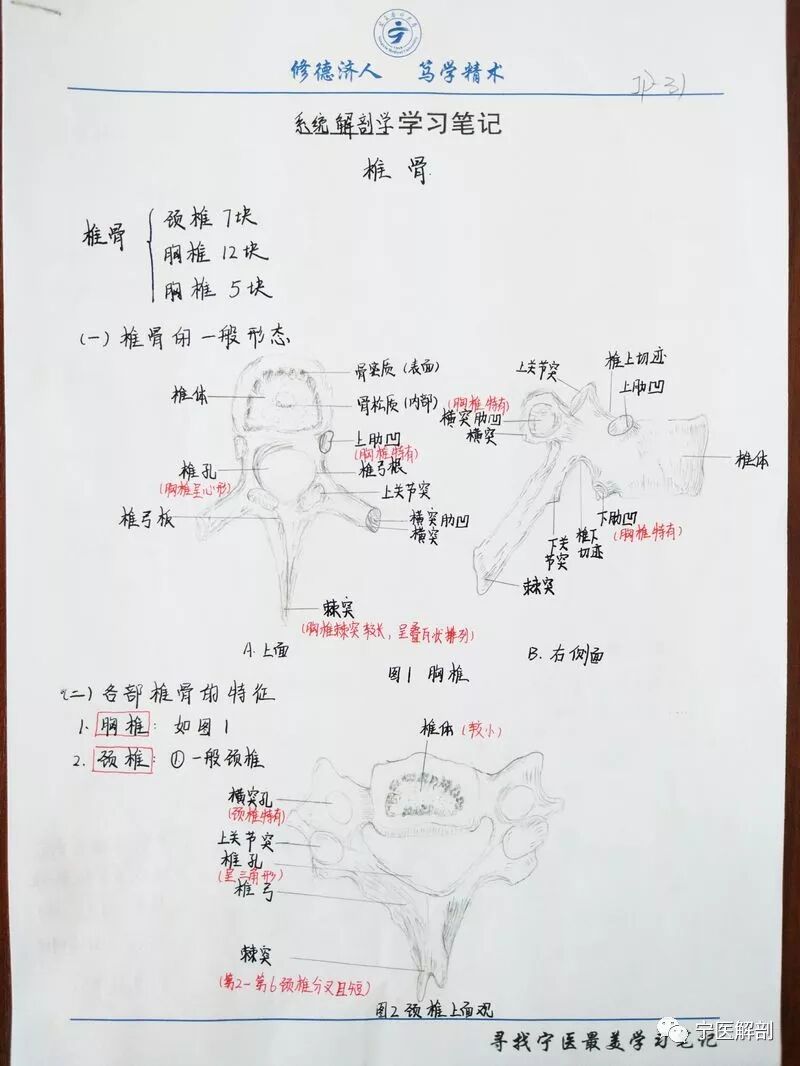 修德济人 笃学精术
系统解剖学学习笔记
椎骨
椎骨
颈椎 7块
胸椎 12块
胸椎 5块
(一)椎骨的一般形态
椎体
骨密质(表面)
骨松质(内部)
上肋凹
(胸椎特有)
椎孔
(胸椎呈心形)
椎弓根
上关节突
椎弓板
横突肋凹
横突
棘突
(胸椎棘突较长,呈叠瓦状排列)
A.上面
上关节突
椎上切迹
上肋凹
(胸椎特有)
横突肋凹
横突
椎体
下肋凹
(胸椎特有)
下关节突
椎下切迹
棘突
B.右侧面
图1 胸椎
(二)各部椎骨的特征
1.胸椎:如图1
2.颈椎:①一般颈椎
椎体(较小)
横突孔
(颈椎特有)
上关节突
椎孔
(呈三角形)
椎弓
棘突
(第2-第6颈椎分叉且短)
图2 颈椎上面观
寻找宁医最美学习笔记
宁医解剖